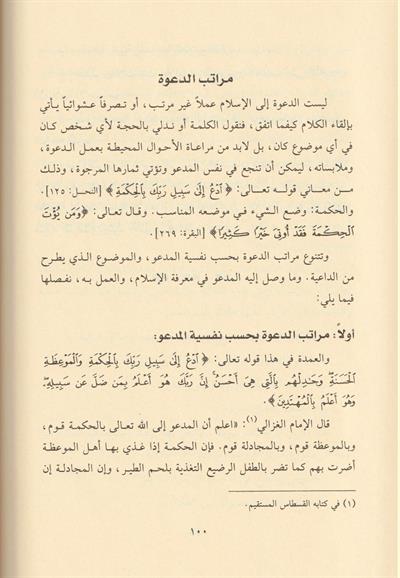 مراتب الدعوة
ليست الدعوة إلى الإسلام عملاً غير مرتب، أو تصرفاً عشوائياً يأتي
بإلقاء الكلام كيفما اتفق، فنقول الكلمة أو ندلي بالحجة لأي شخص كان
في أي موضوع كان، بل لابد من مراعاة الأحوال المحيطة بعمل الدعوة،
وملابساته، ليمكن أن تنجع في نفس المدعو وتؤتي ثمارها المرجوة، وذلك
من معاني قوله تعالى: ﴿ ٱدْعُ إِلَىٰ سَبِيلِ رَبِّكَ بِٱلْحِكْمَةِ ﴾ [النحل: ١٢٥].
والحكمة: وضع الشيء في موضعه المناسب. وقال تعالى: ﴿وَمَن يُؤْتَ
ٱلْحِكْمَةَ فَقَدْ أُوتِىَ خَيْرًا كَثِيرًا﴾ [البقرة: ٢٦٩].
وتتنوع مراتب الدعوة بحسب نفسية المدعو، والموضوع الذي يطرح
من الداعية. وما وصل إليه المدعو في معرفة الإسلام، والعمل به، نفصلها
فيما يلي:
أولاً: مراتب الدعوة بحسب نفسية المدعو:
والعمدة في هذا قوله تعالى: ﴿ ٱدْعُ إِلَىٰ سَبِيلِ رَبِّكَ بِٱلْحِكْمَةِ وَٱلْمَوْعِظَةِ
ٱلْحَسَنَةِ وَجَٰدِلْهُم بِٱلَّتِى هِىَ أَحْسَنُ إِنَّ رَبَّكَ هُوَ أَعْلَمُ بِمَن ضَلَّ عَن سَبِيلِهِۦ
وَهُوَ أَعْلَمُ بِٱلْمُهْتَدِينَ ﴾.
قال الإمام الغزالي(١): «اعلم أن المدعو إلى الله تعالى بالحكمة قوم،
وبالموعظة قوم، وبالمجادلة قوم. فإن الحكمة إذا غذي بها أهل الموعظة
أضرت بهم كما تضر بالطفل الرضيع التغذية بلحم الطير، وإن المجادلة إن
(١) في كتابه القسطاس المستقيم.
١٠٠